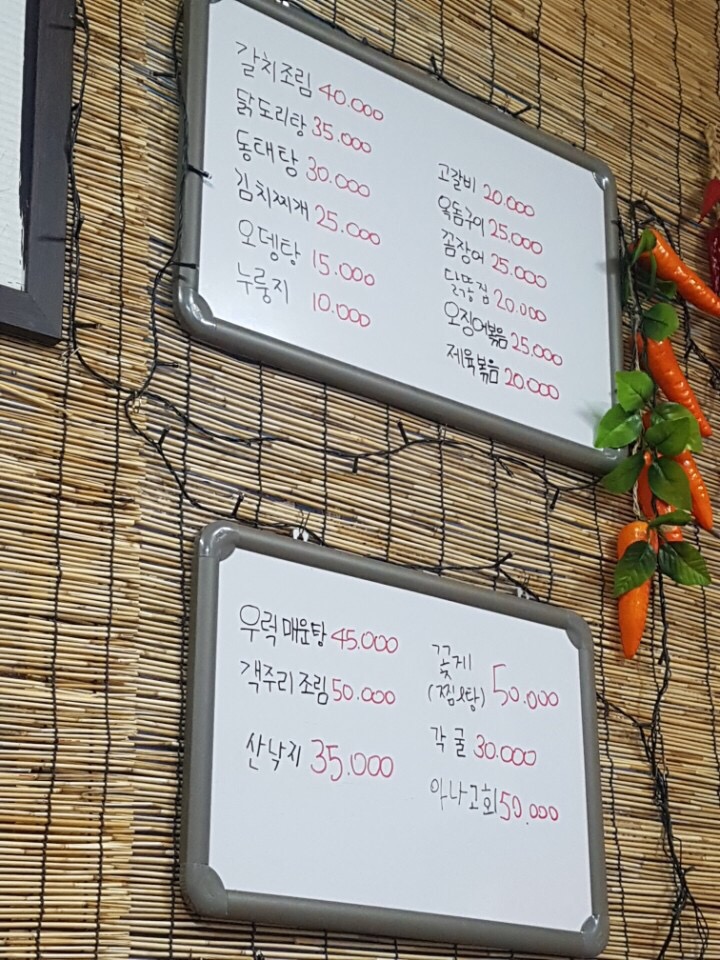 갈치조림 40.000
닭도리탕 35.000
동태탕 30.000
김치찌개 25.000
오뎅탕 15.000
누룽지 10.000
고갈비 20.000
옥돔구이 25.000
꼼장어 25.000
20.000
오징어볶음 25.000
제육볶음 20.000
우럭매운탕 45.000
객주리조림 50.000
산낙지 35.000
꽃게
(찜&탕) 50.000
각굴 30.000
아나고회 50.000